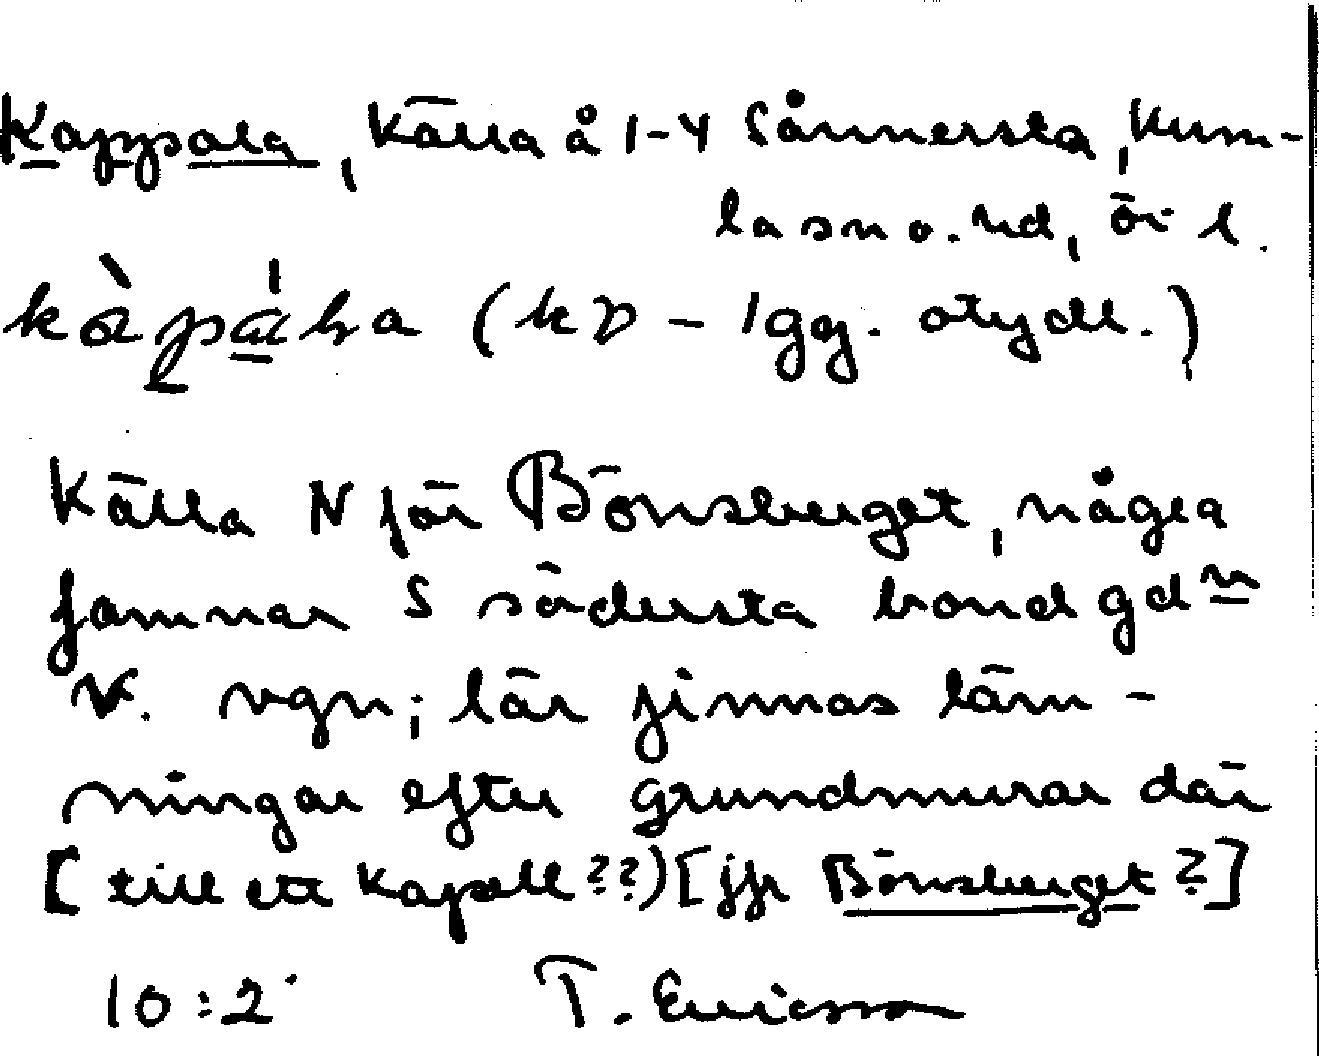 Kappsala, Källa å 1-4 Sånnersta, Kum-
la sn o. hd, Ör l.
kàpáɫa (kv - 1 gg. otydl.)
Källa N för Bönsberget, några
famnar S södersta bondgdn
V. vgn; lär finnas läm-
ningar efter grundmurar där
[till ett kapell??) [jfr Bönsberget?]
10:2 T. Ericsson